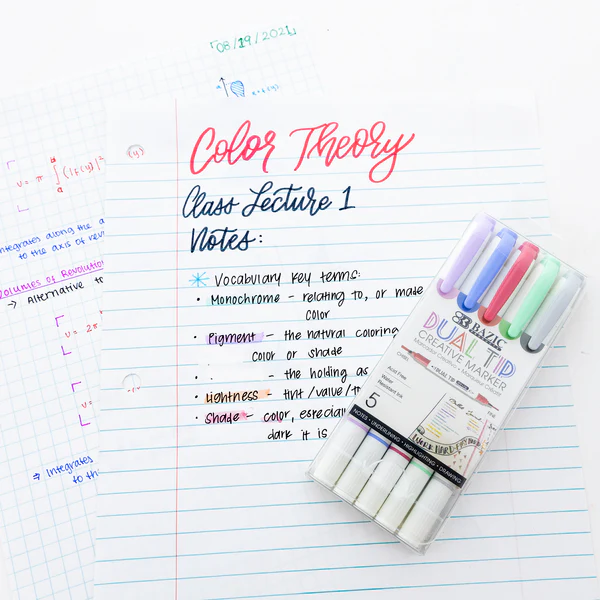 「08/19/2021」
Color Theory
Class Lecture 1
Notes:
Vocabulary key terms:
• Monochrome - relating to, or made
color
• Pigment - the natural coloring
color or shade
• - the holding as
• Lightness - tint/value/
• Shade - color, especial
dark it is
(y)
integrates along the
to the axis of rev
Volumes of Revolution
→ Alternative to
V = 2π
V =
⇒ Integrates
to th
BAZIC
DUAL TIP
CREATIVE MARKER
Marcador Creativo • Marqueur Créatif
CHISEL
FINE
Acid Free
Water
Resistant Ink
5
NOTES • UNDERLINING • HIGHLIGHTING • DRAWING
WORK HARD